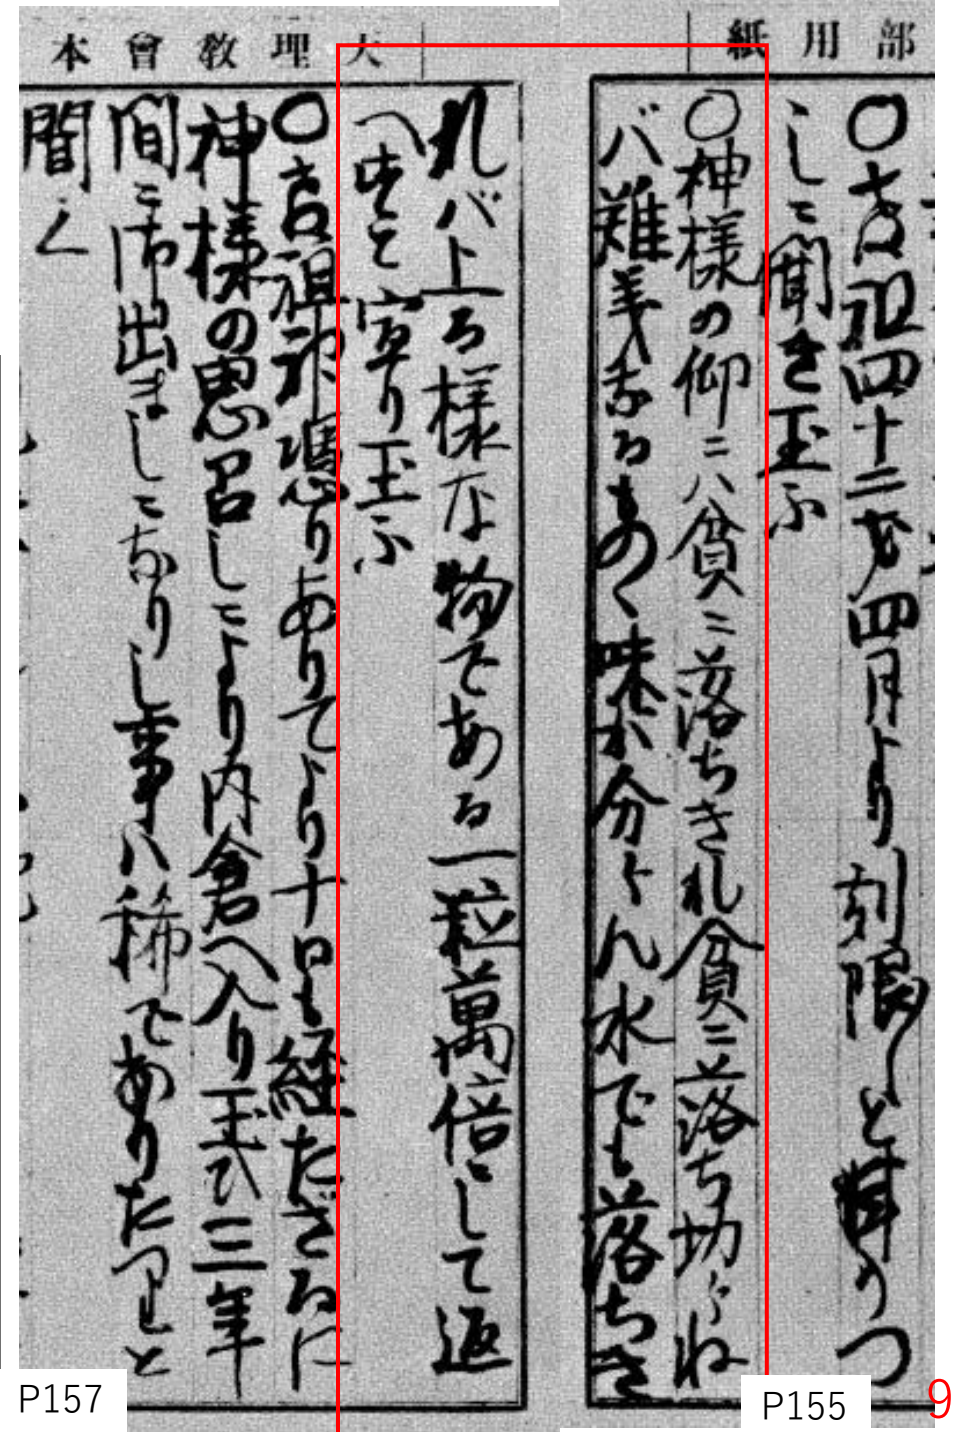 部用紙
○教祖四十二才四月より刻限〱と耳のつ
しニ聞き玉ふ
○神様の仰ニハ貧ニ落ちきれ貧ニ落ち切らね
バ難義なるものゝ味が分らん水でも落ちき
大理教會本
れバ上る様な物である一粒萬倍にして返
へすと宣り玉ふ
○教祖神憑りありてより十日も経たざるに
神様の思召しニより内倉へ入り玉ひ三年
間ニ御出ましニなりし事ハ稀でありたつれと
聞く
P157
P155
9